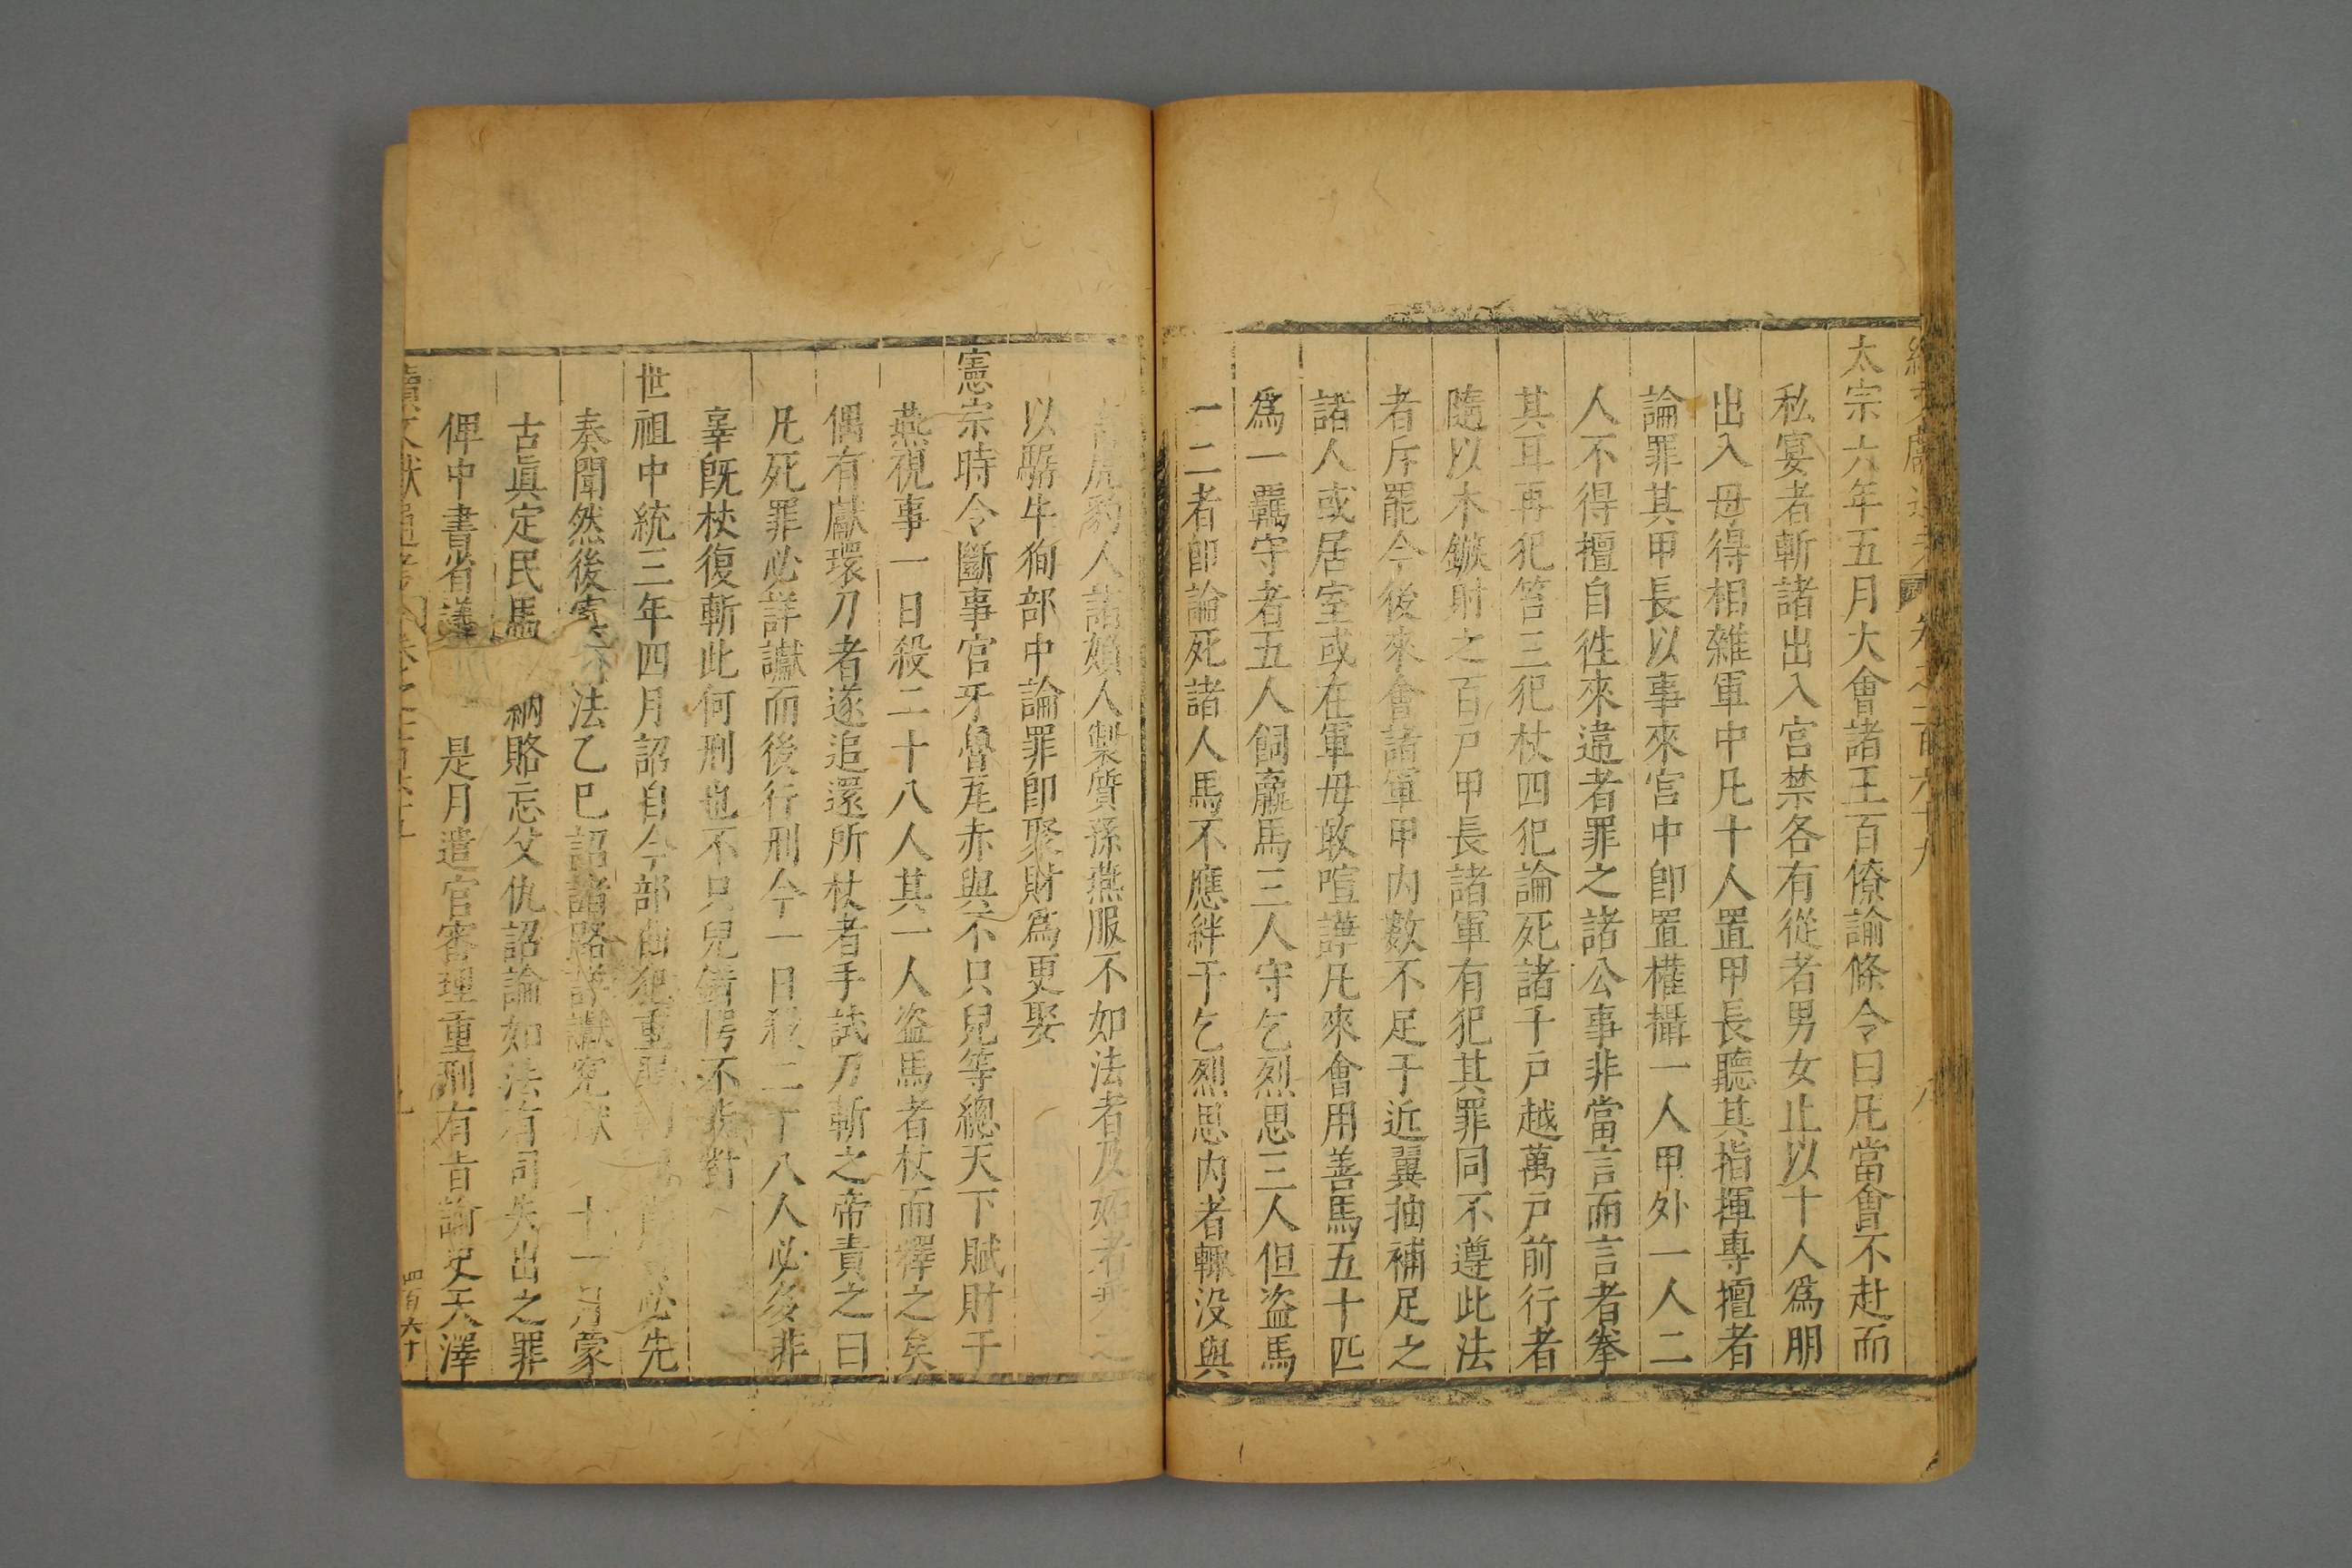 太宗六年五月大會諸王百僚諭條令曰凡當會不赴而
私宴者斬諸出入宮禁各有從者男女止以十人爲朋
出入毋得相雜軍中凡十人置甲長聽其指揮專擅者
論罪其甲長以事來宮中卽置權攝一人甲外一人二
人不得擅自徃來違者罪之諸公事非當言而言者拳
其耳再犯笞三犯杖四犯論死諸千戶越萬戶前行者
隨以木鏃射之百戶甲長諸軍有犯其罪同不遵此法
者斥罷今後來會諸軍甲內數不足于近翼抽補足之
諸人或居室或在軍毋敢喧譁凡來會用善馬五十匹
爲一羈守者五人飼羸馬三人守乞烈思三人但盜馬
一二者卽論死諸人馬不應絆于乞烈思內者輒没與
虎豹人諸婦人製質孫燕服不如法者及妬者
以騸牛徇部中論罪卽聚財爲更娶
憲宗時令斷事官牙魯瓦赤與不只兒等總天下賦財于
燕視事一日殺二十八人其一人盜馬者杖而釋之矣
偶有獻環刀者遂追還所杖者手試刀斬之帝責之曰
凡死罪必詳讞而後行刑今一日殺二十八人必多非
辜旣杖復斬此何刑也不只兒錯愕不能對
世祖中統三年四月詔自今部曲犯重罪 必先
奏聞然後寘 法乙巳詔諸路詳讞冤獄 十一月蒙
古眞定民馬 納賂忘父仇詔論如法有司失出之罪
俾中書省議 是月遣官審理重刑有旨諭史天澤
續文獻通考 卷之
四百六十